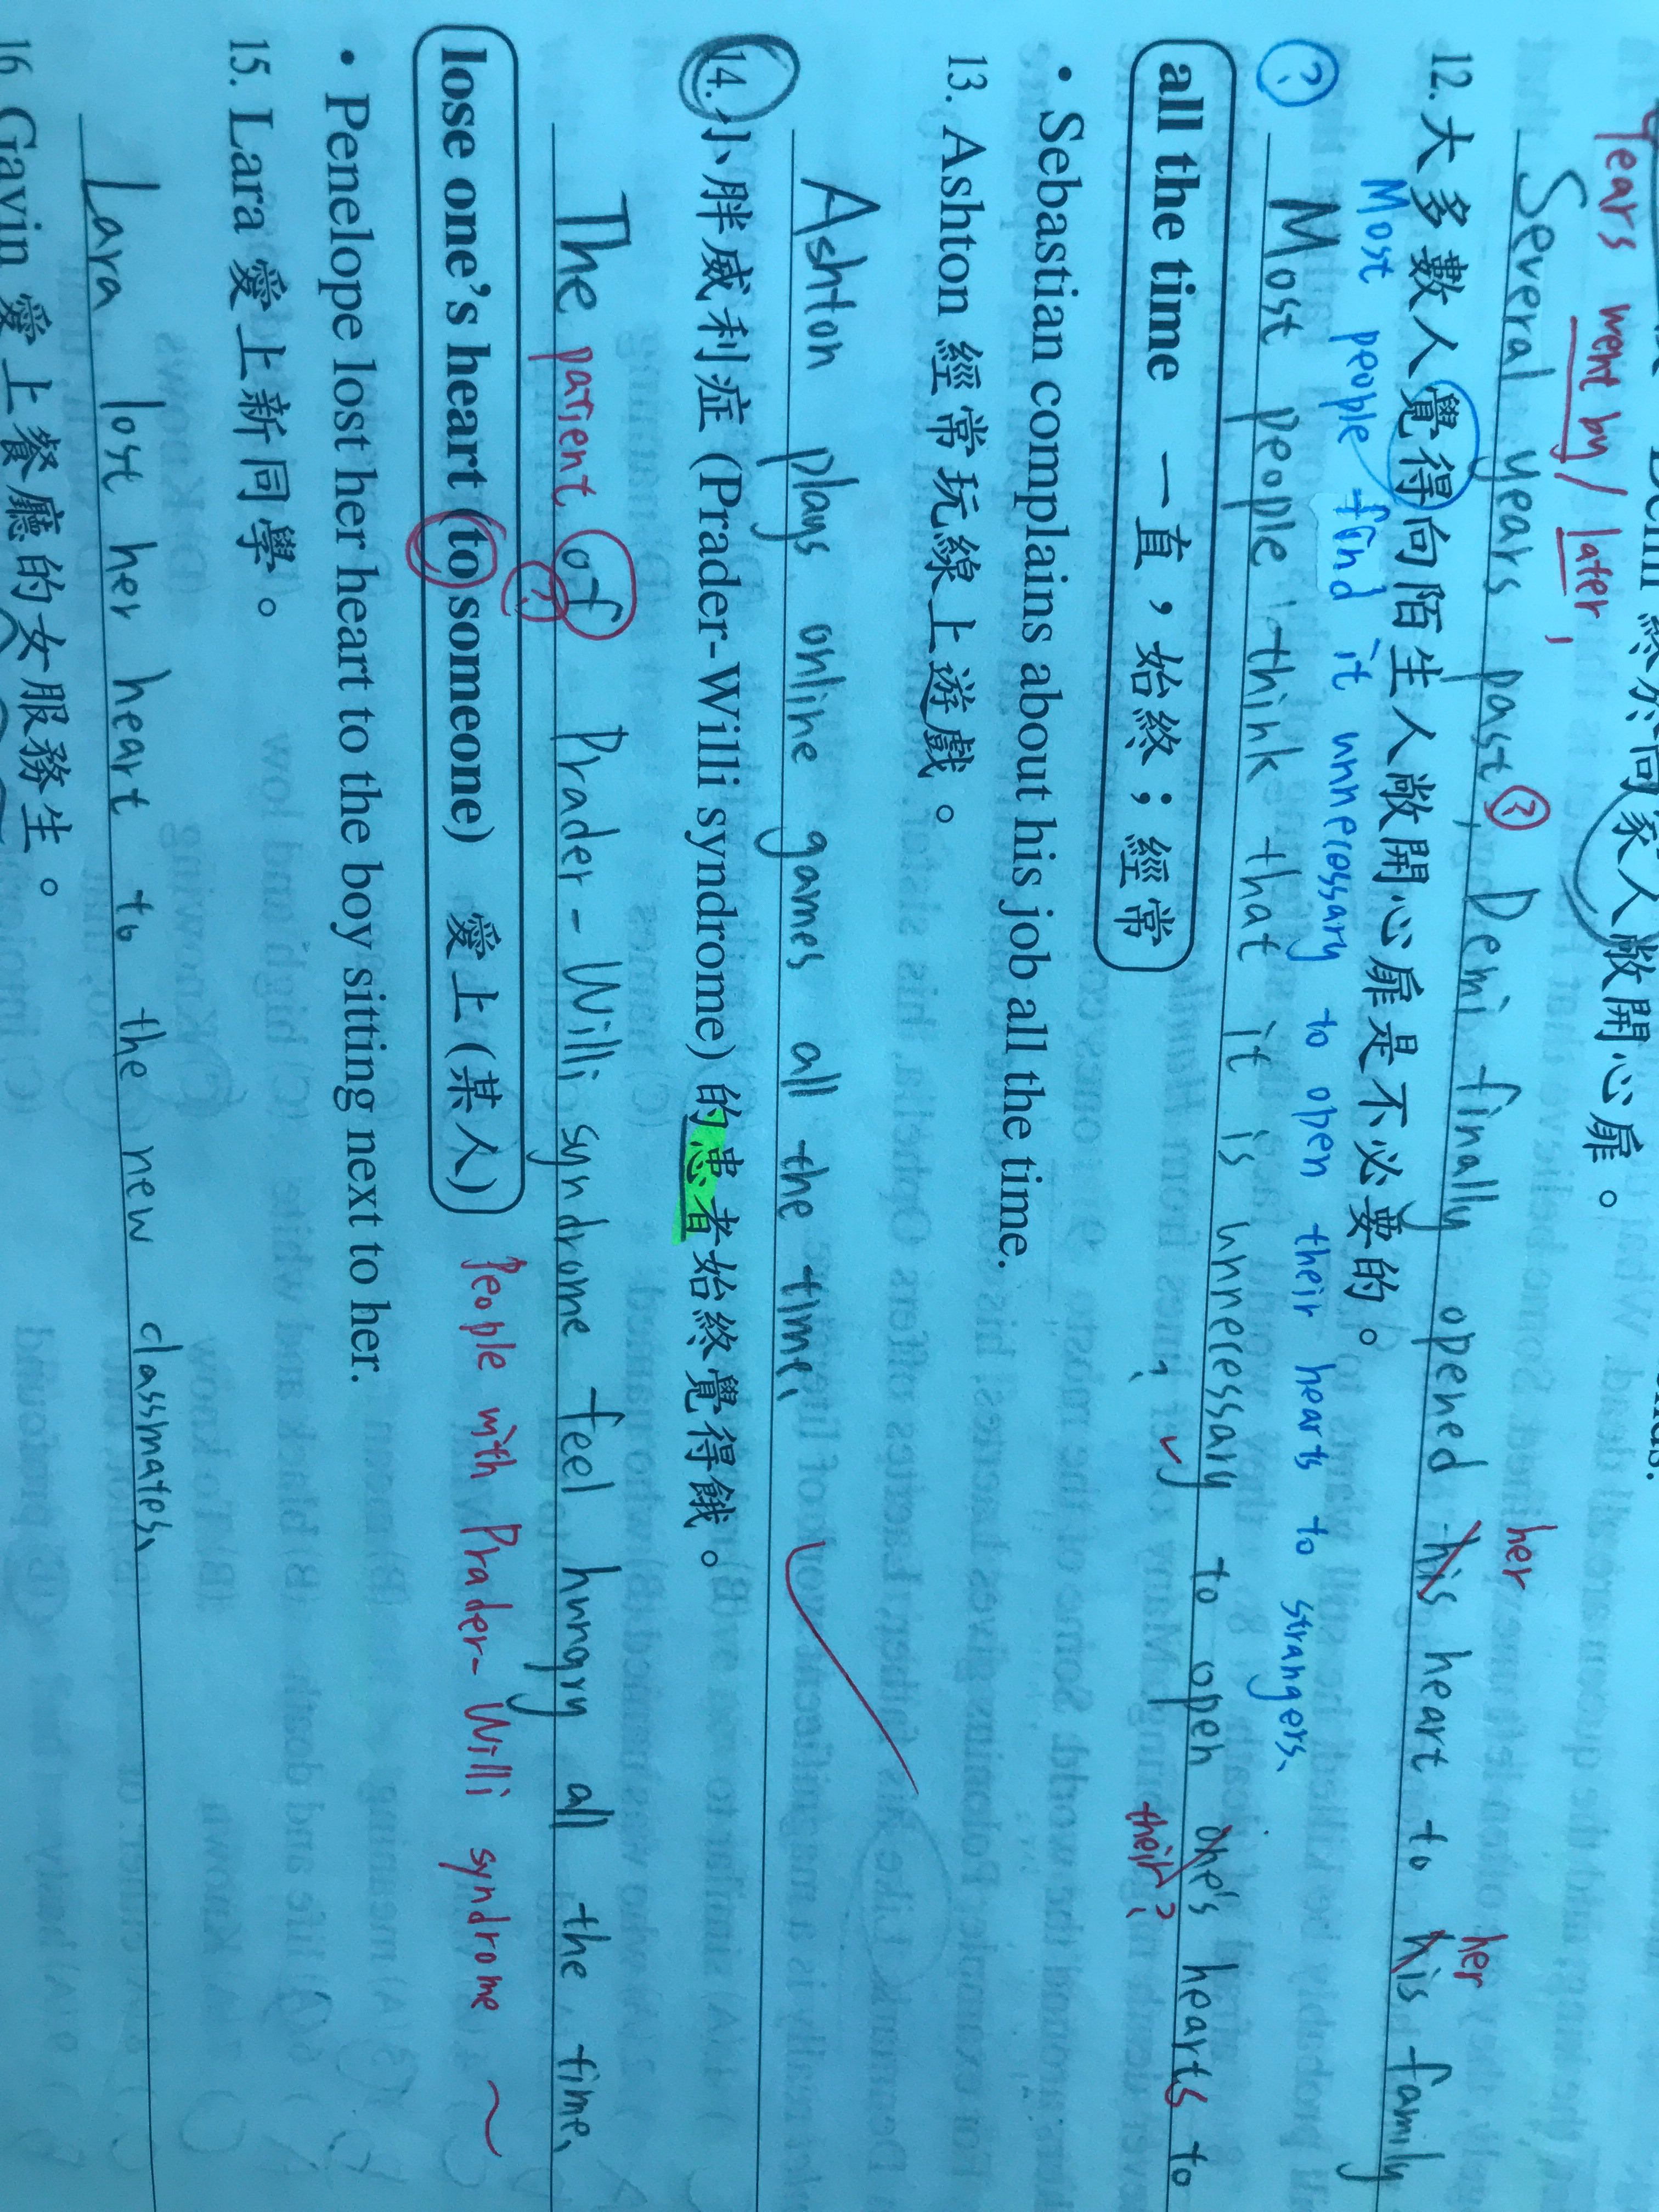 years went by / later,
家人敞開心扉。
Several years past, Demi finally opened his heart to his family
her
her
12. 大多數人覺得向陌生人敞開心扉是不必要的。
Most people find it unnecessary to open their hearts to strangers.
Most people think that it is unnecessary to open one's hearts to
their?
all the time 一直，始終；經常
• Sebastian complains about his job all the time.
13. Ashton 經常玩線上遊戲。
Ashton plays online games all the time.
14. 小胖威利症 (Prader-Willi syndrome) 的患者始終覺得餓。
The parient of Prader-Willi syndrome feel hungry all the time.
lose one's heart (to someone) 愛上 (某人)
People with Prader-Willi syndrome ~
• Penelope lost her heart to the boy sitting next to her.
15. Lara 愛上新同學。
Lara lost her heart to the new classmates.
16. Gavin 愛上餐廳的女服務生。